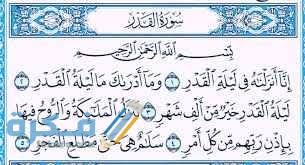 سُورَةُ القَدْرِ
بِسْمِ اللَّهِ الرَّحْمَٰنِ الرَّحِيمِ
إِنَّا أَنزَلْنَاهُ فِي لَيْلَةِ الْقَدْرِ ١ وَمَا أَدْرَاكَ مَا لَيْلَةُ الْقَدْرِ ٢
لَيْلَةُ الْقَدْرِ خَيْرٌ مِّنْ أَلْفِ شَهْرٍ ٣ تَنَزَّلُ الْمَلَائِكَةُ وَالرُّوحُ فِيهَا
بِإِذْنِ رَبِّهِم مِّن كُلِّ أَمْرٍ ٤ سَلَامٌ هِيَ حَتَّىٰ مَطْلَعِ الْفَجْرِ ٥
فكرة